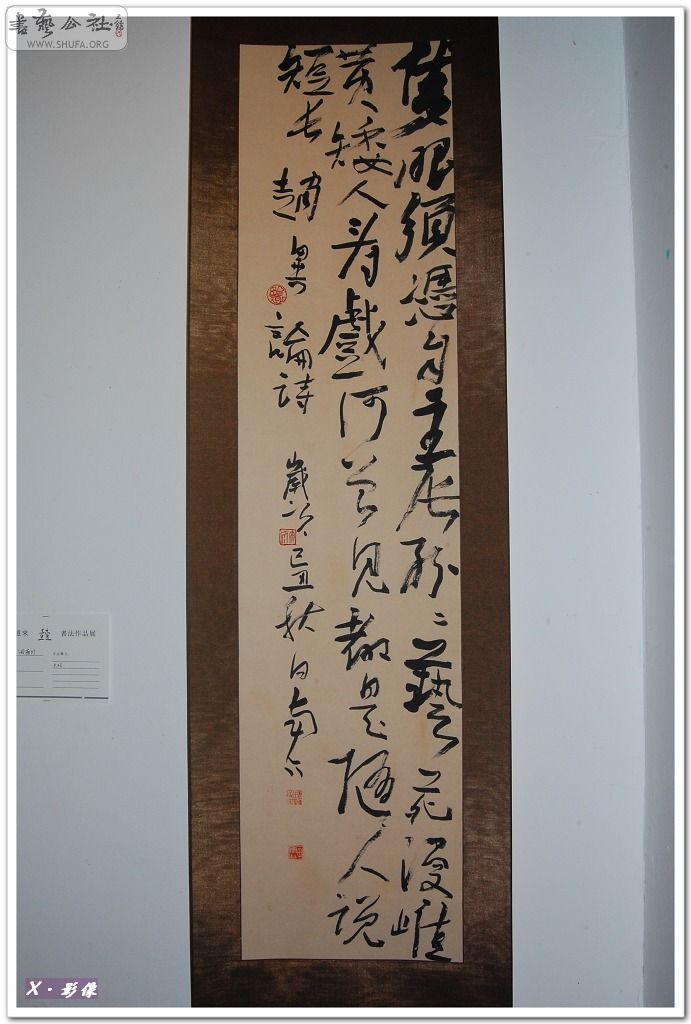 書藝公社
WWW.SHUFA.ORG
隻眼須憑自主張紛〻藝苑漫雌
黃矮人看戲何曾見都是隨人說
短長 趙翼論詩 歲次己丑秋日南
書法作品展
X·影像